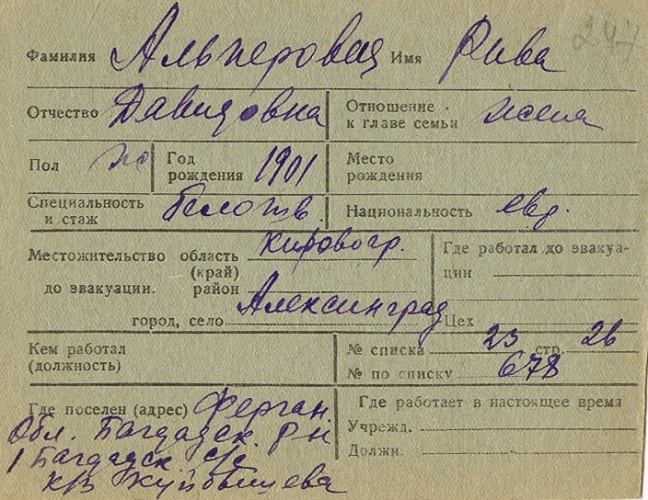 247
Фамилия Альперович Имя Рива
Отчество Давидовна Отношение к главе семьи жена
Пол ж Год рождения 1901 Место рождения
Специальность и стаж белошв. Национальность евр.
Местожительство область Кировогр. Где работал до эвакуа-
(край) ции
до эвакуации. район
город, село Александград Цех
Кем работал (должность) № списка 23 стр. 26
№ по списку 678
Где поселен (адрес) Ферган. Где работает в настоящее время
Обл. Багдадск. р-н Учрежд.
1 Багдадск с/с Должн.
к/з Куйбышева